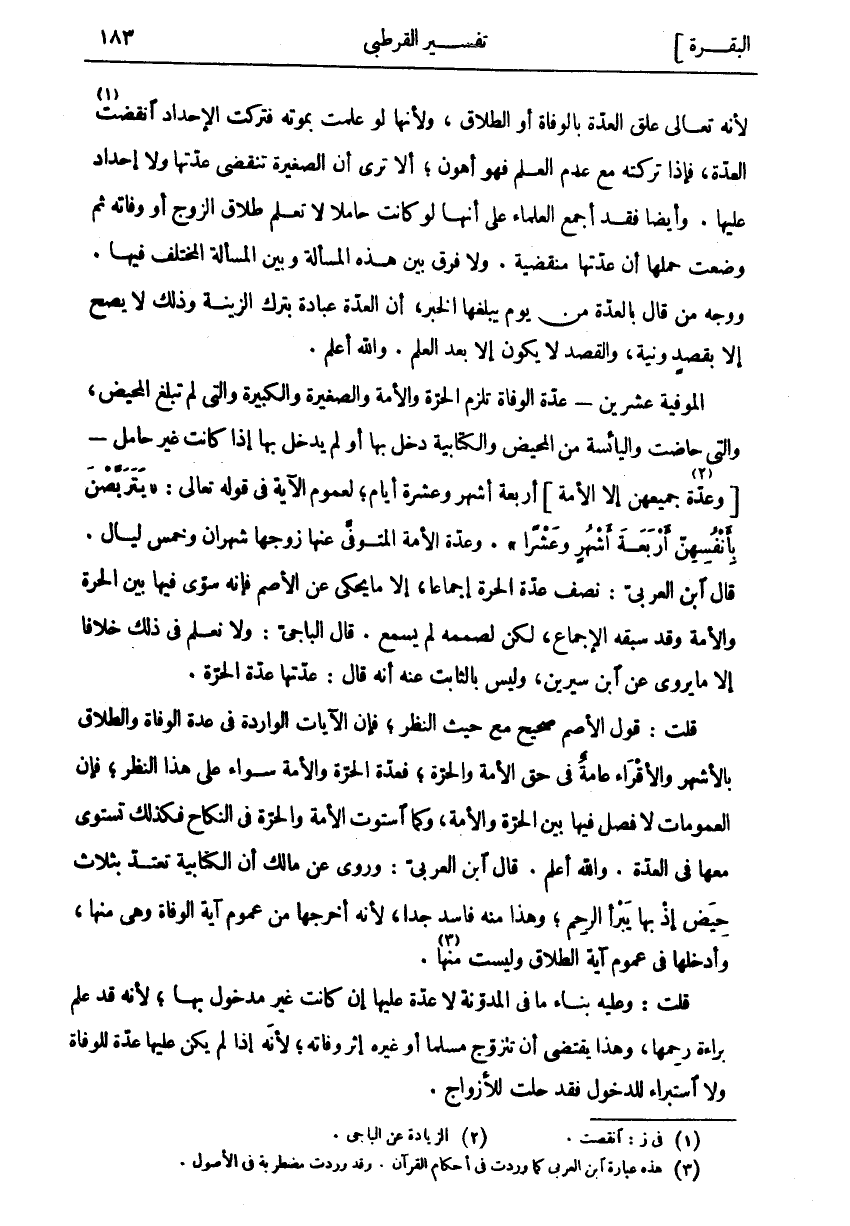 البقـرة ] تفسـير القرطبى ١٨٣
لأنه تعـالى علق العدّة بالوفاة أو الطلاق ، ولأنها لو علمت بموته فتركت الإحداد ٱنقضت(١)
العدّة، فإذا تركته مع عدم العـلم فهو أهون ؛ ألا ترى أن الصغيرة تنقضى عدّتها ولا إحداد
عليها . وأيضا فقـد أجمع العلماء على أنهـا لو كانت حاملا لا تعـلم طلاق الزوج أو وفاته ثم
وضعت حملها أن عدّتها منقضية . ولا فرق بين هـذه المسألة وبين المسألة المختلف فيهـا .
ووجه من قال بالعدّة من يوم يبلغها الخبر، أن العدّة عبادة بترك الزينـة وذلك لا يصح
إلا بقصدٍ ونية، والقصد لا يكون إلا بعد العلم . والله أعلم .
الموفية عشرين — عدّة الوفاة تلزم الحرّة والأمة والصغيرة والكبيرة والتى لم تبلغ المحيض،
والتى حاضت واليائسة من المحيض والكتابية دخل بها أو لم يدخل بها إذا كانت غير حامل —
[ وعدّة جميعهن إلا الأمة ](٢) أربعة أشهر وعشرة أيام؛ لعموم الآية فى قوله تعالى : « يَتَرَبَّصْنَ
بِأَنْفُسِهِنَّ أَرْبَعَـةَ أَشْهُرٍ وعَشْرًا » . وعدّة الأمة المتـوفّى عنها زوجها شهران وخمس ليـال .
قال ٱبن العربىّ : نصف عدّة الحرة إجماعا، إلا ما يحكى عن الأصم فإنه سوّى فيها بين الحرة
والأمة وقد سبقه الإجماع، لكن لصممه لم يسمع . قال الباجىّ : ولا نعـلم فى ذلك خلافا
إلا ما يروى عن ٱبن سيرين، وليس بالثابت عنه أنه قال : عدّتها عدّة الحرّة .
قلت : قول الأصم صحيح مع حيث النظر ؛ فإن الآيات الواردة فى عدة الوفاة والطلاق
بالأشهر والأقْرَاء عامةٌ فى حق الأمة والحرّة ؛ فعدّة الحرّة والأمة سـواء على هذا النظر ؛ فإن
العمومات لا فصل فيها بين الحرّة والأمة، وكما ٱستوت الأمة والحرّة فى النكاح فكذلك تستوى
معها فى العدّة . والله أعلم . قال ٱبن العربىّ : وروى عن مالك أن الكتابية تعتـدّ بثلاث
حِيَض إذْ بها يَبْرأ الرحِم ؛ وهذا منه فاسد جدا، لأنه أخرجها من عموم آية الوفاة وهى منها،
وأدخلها فى عموم آية الطلاق وليست منها(٣) .
قلت : وعليه بنـاء ما فى المدوّنة لا عدّة عليها إن كانت غير مدخول بهـا ؛ لأنه قد علم
براءة رحمها، وهذا يقتضى أن تتزوّج مسلما أو غيره إثر وفاته؛ لأنّه إذا لم يكن عليها عدّة للوفاة
ولا ٱستبراء للدخول فقد حلت للأزواج .
(١) فى ز : ٱنقصت . (٢) الزيادة عن الباجى .
(٣) هذه عبارة ٱبن العربى كما وردت فى أحكام القرآن . وقد وردت مضطربة فى الأصول .